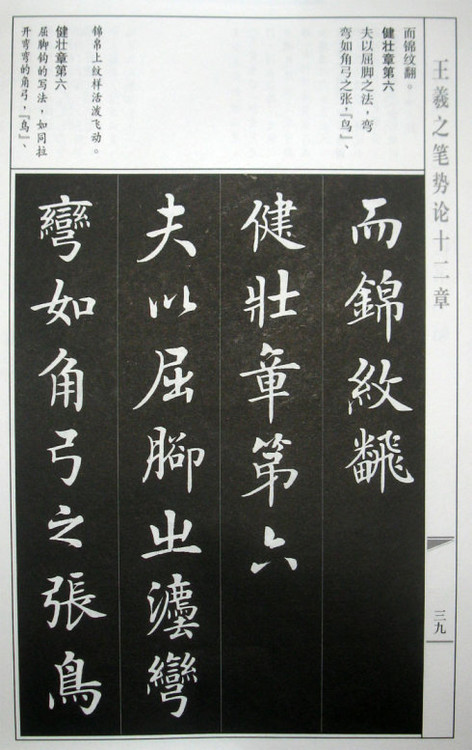 王羲之笔势论十二章
三九
而锦纹翻。
健壮章第六
夫以屈脚之法，弯
弯如角弓之张，『鸟』、
锦帛上纹样活泼飞动。
健壮章第六
屈脚钩的写法，如同拉
开弯弯的角弓，『鸟』、
而錦紋飜
健壯章第六
夫以屈腳㞢灋彎
彎如角弓之張鳥